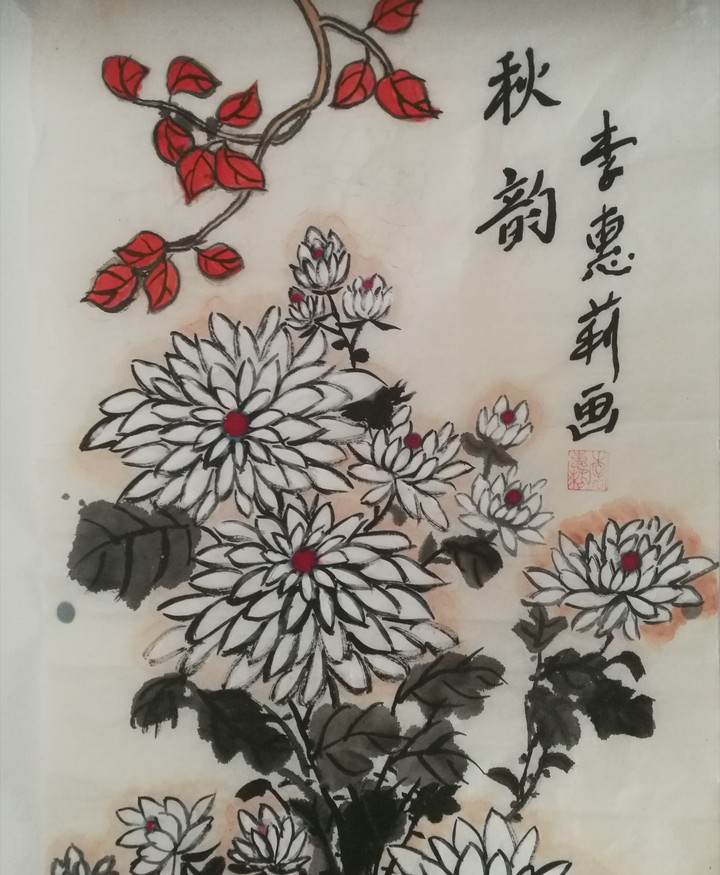 秋韵
李惠莉画